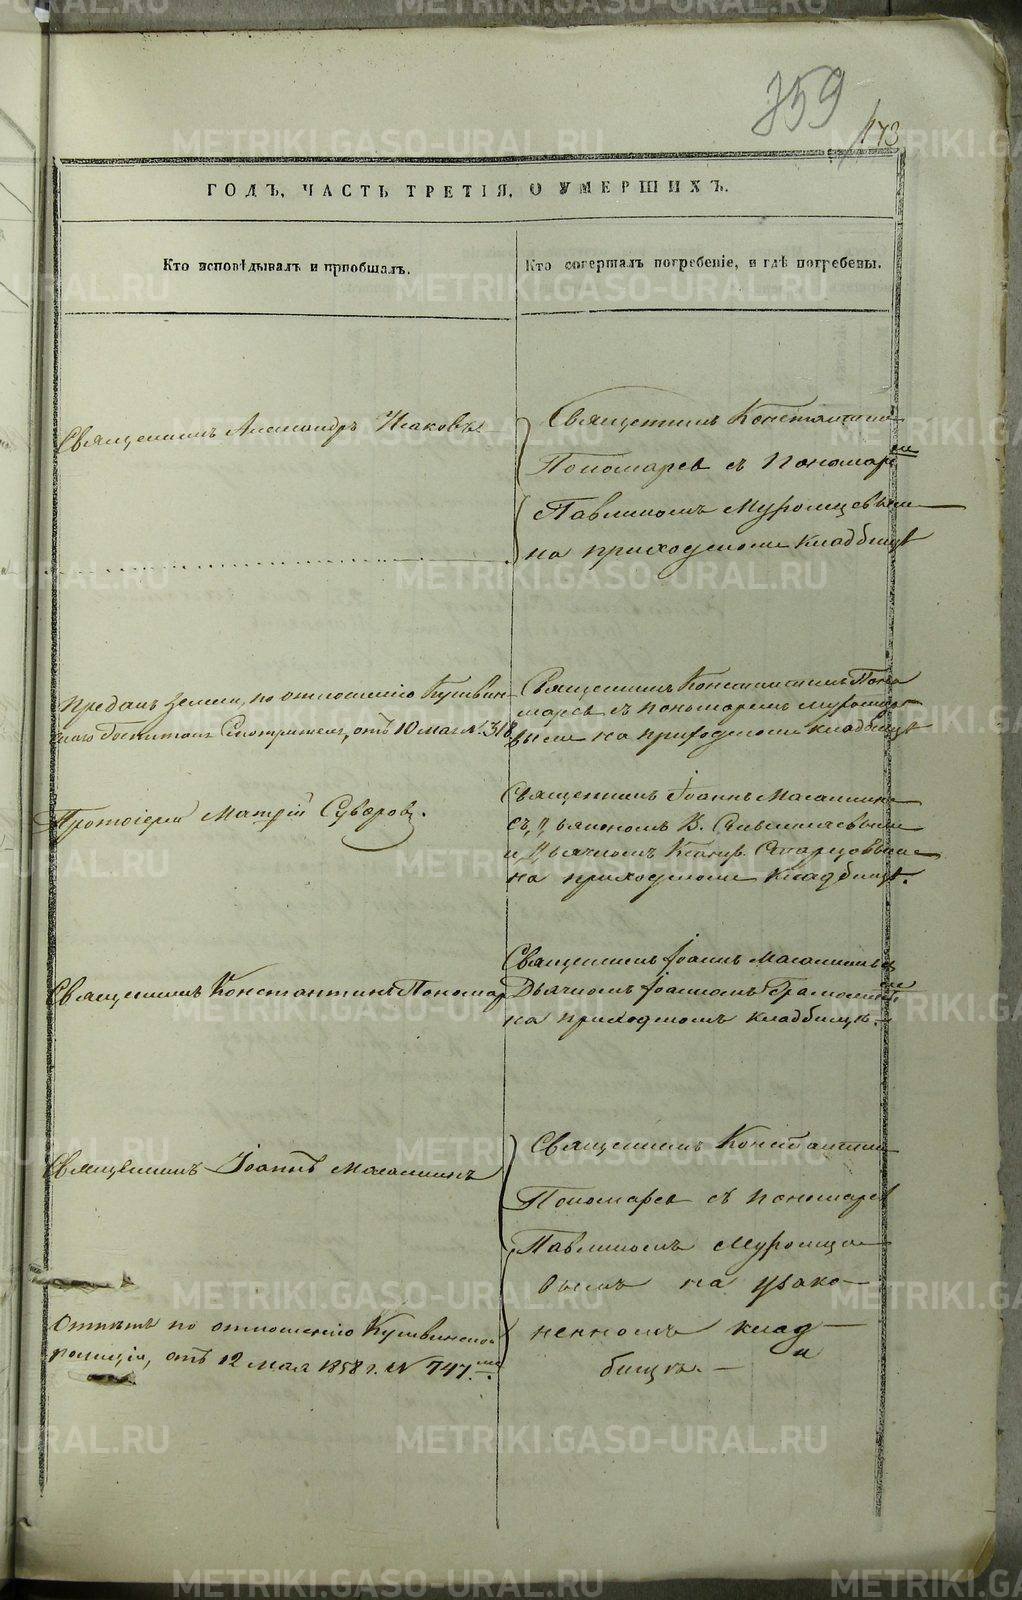 359
173
ГОДЪ, ЧАСТЬ ТРЕТІЯ, О УМЕРШИХЪ.
Кто исповѣдывалъ и пріобщалъ.
Кто совершалъ погребеніе, и гдѣ погребены.
Священникъ Александръ Исаковъ
Священникъ Константинъ
Пономаревъ съ пономаремъ
Павлиномъ Муромцовымъ
на приходскомъ кладбищѣ
Преданъ землѣ, по отношенію Кушвин-
скаго Госпиталя Смотрителя, отъ 10 мая №. 318
Священникъ Константинъ Поно
маревъ съ пономаремъ Муромцо
вымъ на приходскомъ кладбищѣ
Протоіерей Матѳій Суворовъ.
Священникъ Іоаннъ
съ Дьякономъ В.
и Дьячкомъ Старцовымъ
на приходскомъ кладбищѣ.
Священникъ Константинъ Пономар
Священникъ Іоаннъ
Дьячкомъ Іоанномъ
на приходскомъ кладбищѣ.
Священникъ Іоаннъ
Священникъ Константинъ
Пономаревъ съ пономаремъ
Павлиномъ Муромцо
вымъ на узако-
ненномъ клад-
бищѣ.
Отпѣтъ по отношенію Кушвинской
полиціи, отъ 12 Мая 1858 г. № 747.
METRIKI.GASO-URAL.RU